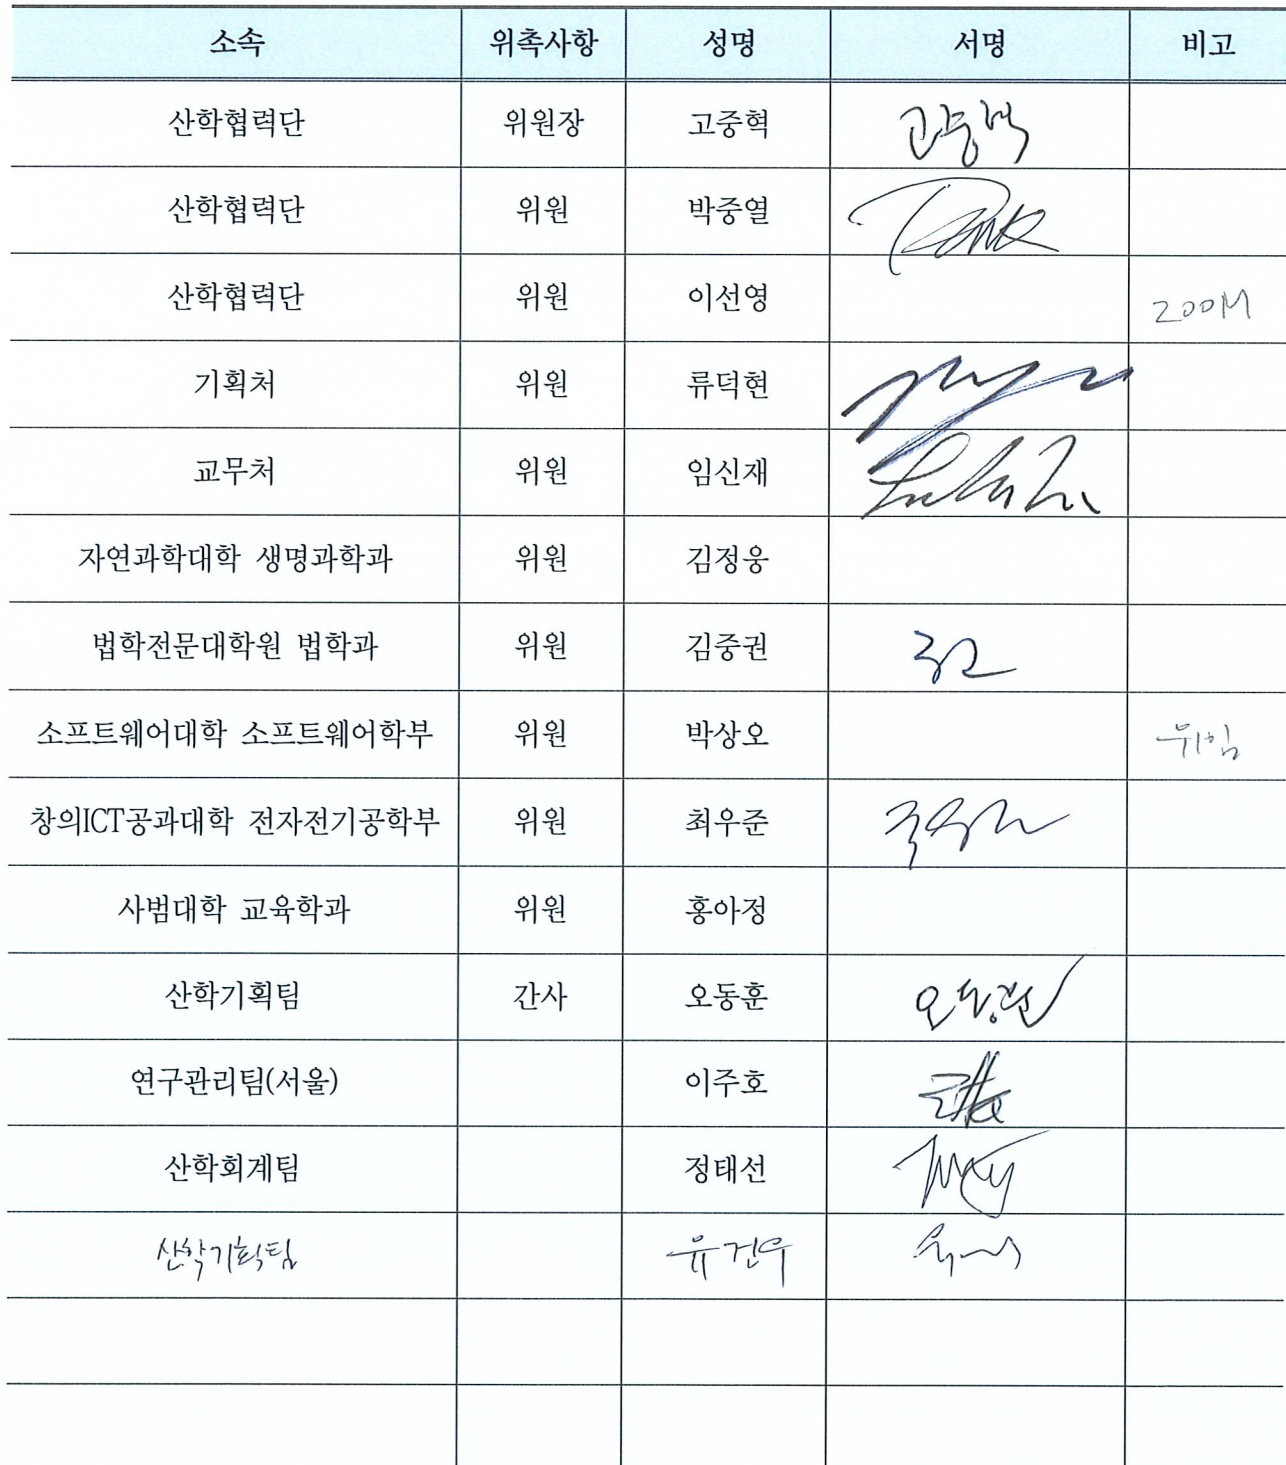 소속 위촉사항 성명 서명 비고
산학협력단 위원장 고중혁 고중혁
산학협력단 위원 박중열
산학협력단 위원 이선영 ZOOM
기획처 위원 류덕현
교무처 위원 임신재
자연과학대학 생명과학과 위원 김정웅
법학전문대학원 법학과 위원 김중권
소프트웨어대학 소프트웨어학부 위원 박상오 위임
창의ICT공과대학 전자전기공학부 위원 최우준
사범대학 교육학과 위원 홍아정
산학기획팀 간사 오동훈 오동훈
연구관리팀(서울) 이주호
산학회계팀 정태선
산학기획팀 유건우